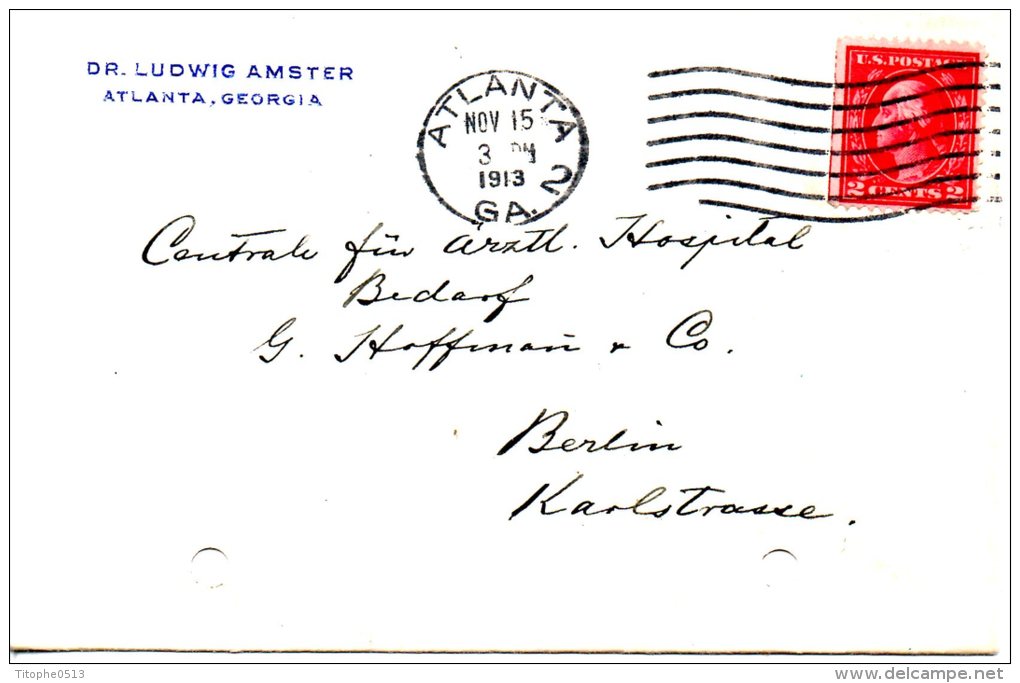 DR. LUDWIG AMSTER
ATLANTA, GEORGIA
ATLANTA
NOV 15
3 PM
1913
2
GA.
U.S. POSTAGE
2 CENTS 2
Centrale für ärztl. Hospital
Bedarf
G. Hoffmann & Co.
Berlin
Karlstrasse.
Titophe0513
delcampe.net